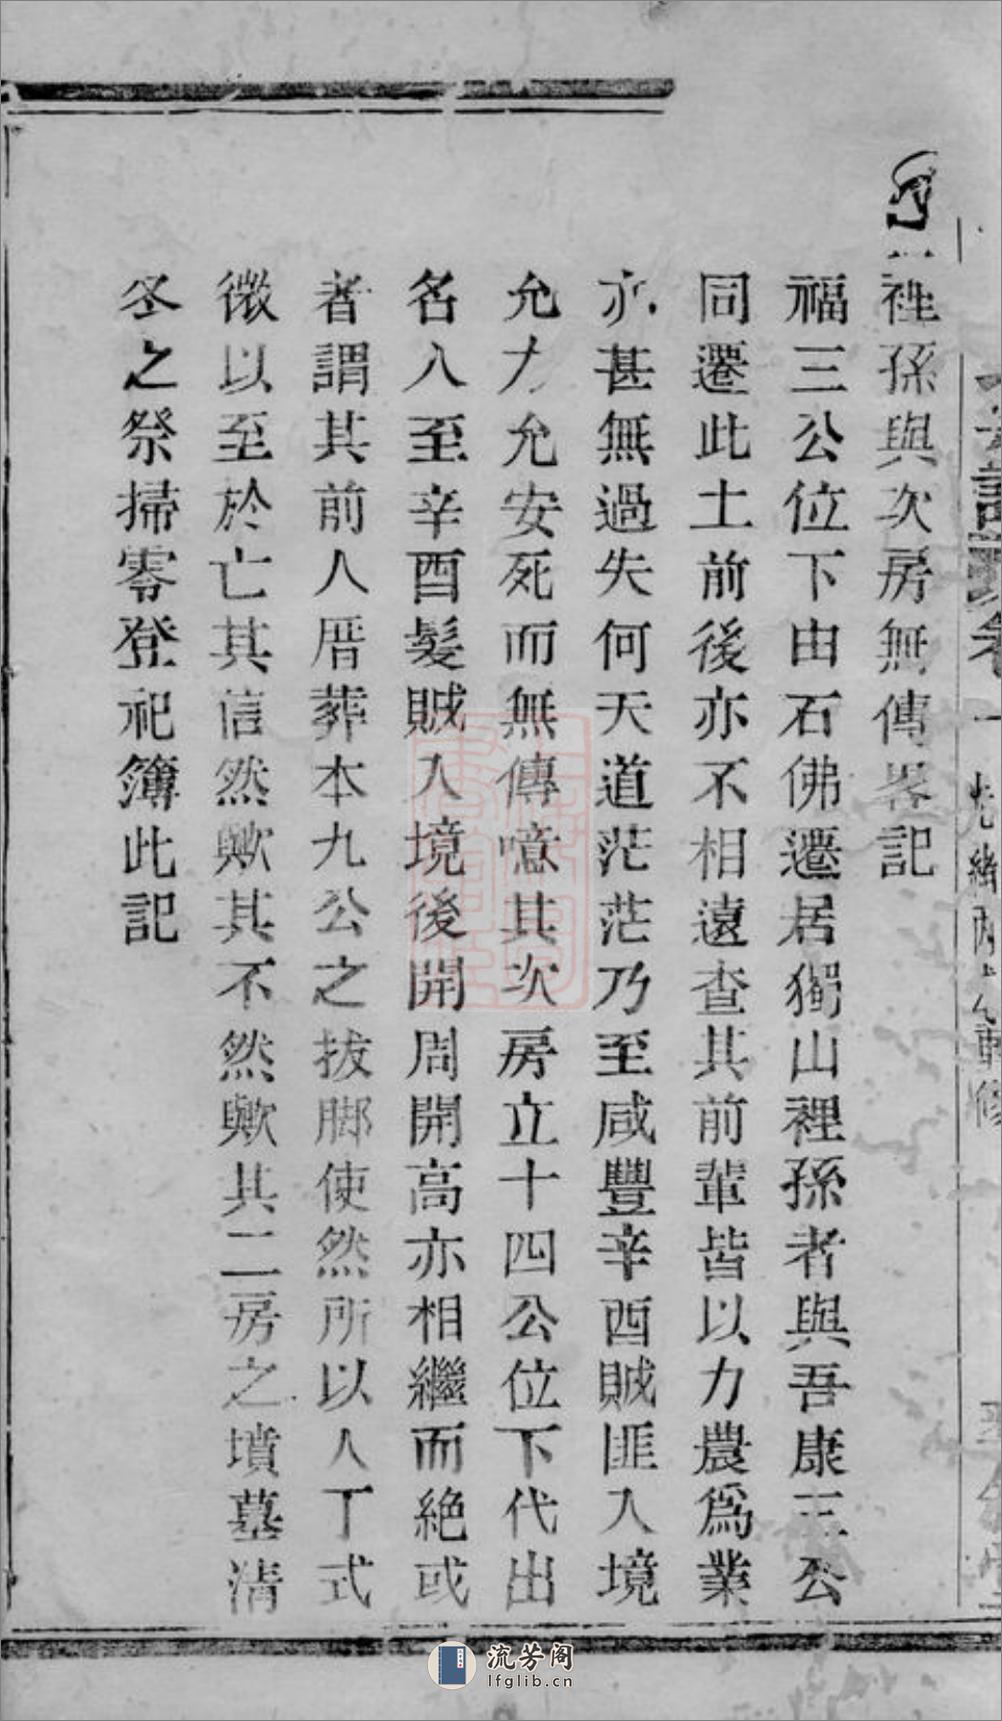 裡孫與次房無傳畧記
福三公位下由石佛遷居獨山裡孫者與吾康三公
同遷此土前後亦不相遠查其前輩皆以力農爲業
亦甚無過失何天道茫茫乃至咸豐辛酉賊匪入境
允力允安死而無傳噫其次房立十四公位下代出
名人至辛酉髮賊入境後開周開高亦相繼而絕或
者謂其前人厝葬本九公之拔脚使然所以人丁式
微以至於亡其信然歟其不然歟其二房之墳墓清
冬之祭掃零登祀簿此記
流芳阁
lfglib.cn